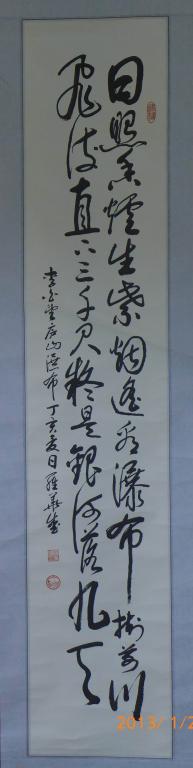 日照香爐生紫烟遙看瀑布掛前川
飛流直下三千尺疑是銀河落九天
李白望廬山瀑布丁亥夏日羅
2013/1/2